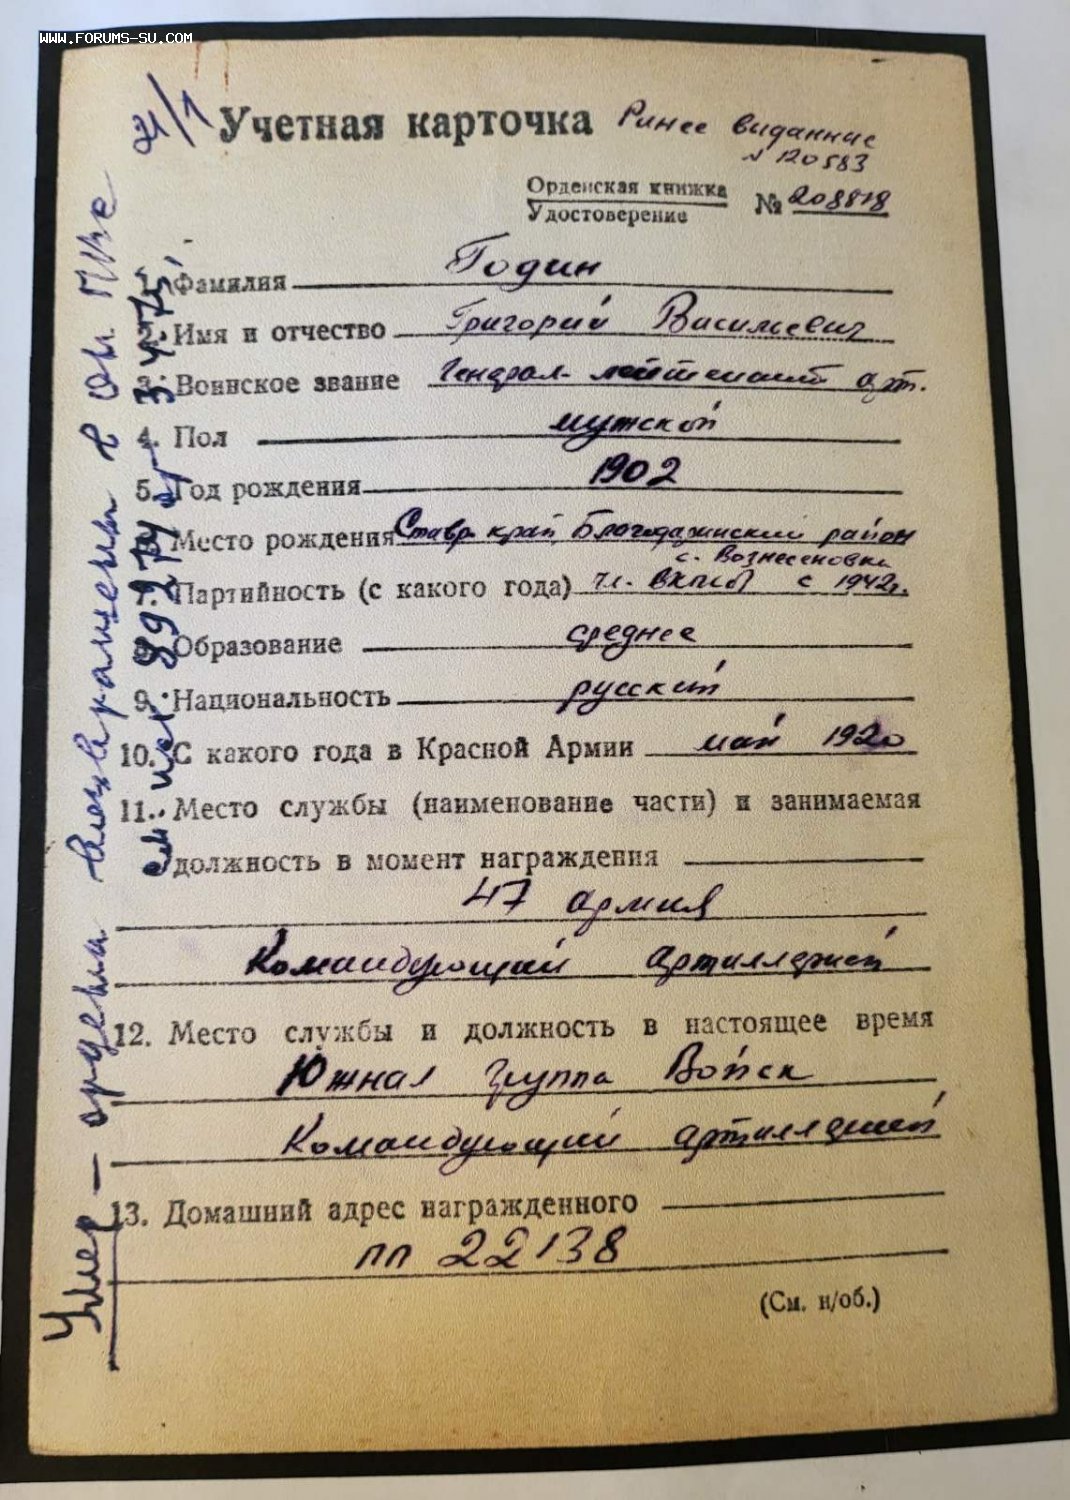 WWW.FORUMS-SU.COM
Учетная карточка
Ранее выданные
№ 120583
Орденская книжка
Удостоверение № 208818
1. Фамилия Годин
2. Имя и отчество Григорий Васильевич
3. Воинское звание Генерал-лейтенант арт.
4. Пол мужской
5. Год рождения 1902
6. Место рождения Ставр. край, Благодарненский район
с. Вознесеновка
7. Партийность (с какого года) чл. ВКП(б) с 1942г.
8. Образование среднее
9. Национальность русский
10. С какого года в Красной Армии май 1920
11. Место службы (наименование части) и занимаемая
должность в момент награждения
47 армия
Командующий артиллерией
12. Место службы и должность в настоящее время
Южная группа Войск
Командующий артиллерией
13. Домашний адрес награжденного
пп 22138
(См. н/об.)
Умер — ордена возвращены в